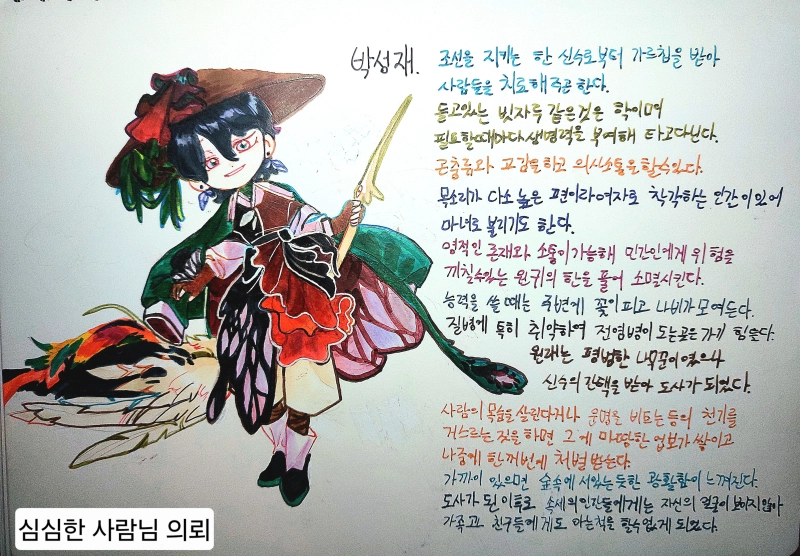 박성재.
조선을 지키는 한 신수로부터 가르침을 받아
사람들을 치료해주곤 한다.
들고있는 빗자루 같은것은 학이며
필요할때마다 생명력을 부여해 타고다닌다.
곤충들과 교감을하고 의사소통을할수있다.
목소리가 다소 높은 편이라여자로 착각하는 인간이있어
마녀로 불리기도 한다.
영적인 존재와 소통이가능해 민간인에게 위험을
끼칠수있는 원귀의 한을 풀어 소멸시킨다.
능력을 쓸때는 주변에 꽃이피고 나비가모여든다.
질병에 특히 취약하여 전염병이 도는곳은가기 힘들다.
원래는 평범한 나무꾼이였으나
신수의간택을 받아 도사가 되었다.
사람의 목숨을살린다거나 운명을 비트는등의 천기를
거스르는 짓을하면 그에 마땅한 업보가쌓이고
나중에 한꺼번에 처벌받는다.
가까이 있으면 숲속에 서있는듯한 광활함이느껴진다.
도사가 된 이후로 속세의인간들에게는 자신의 얼굴이보이지않아
가족과 친구들에게도 아는척을 할수없게 되었다.
심심한 사람님 의뢰